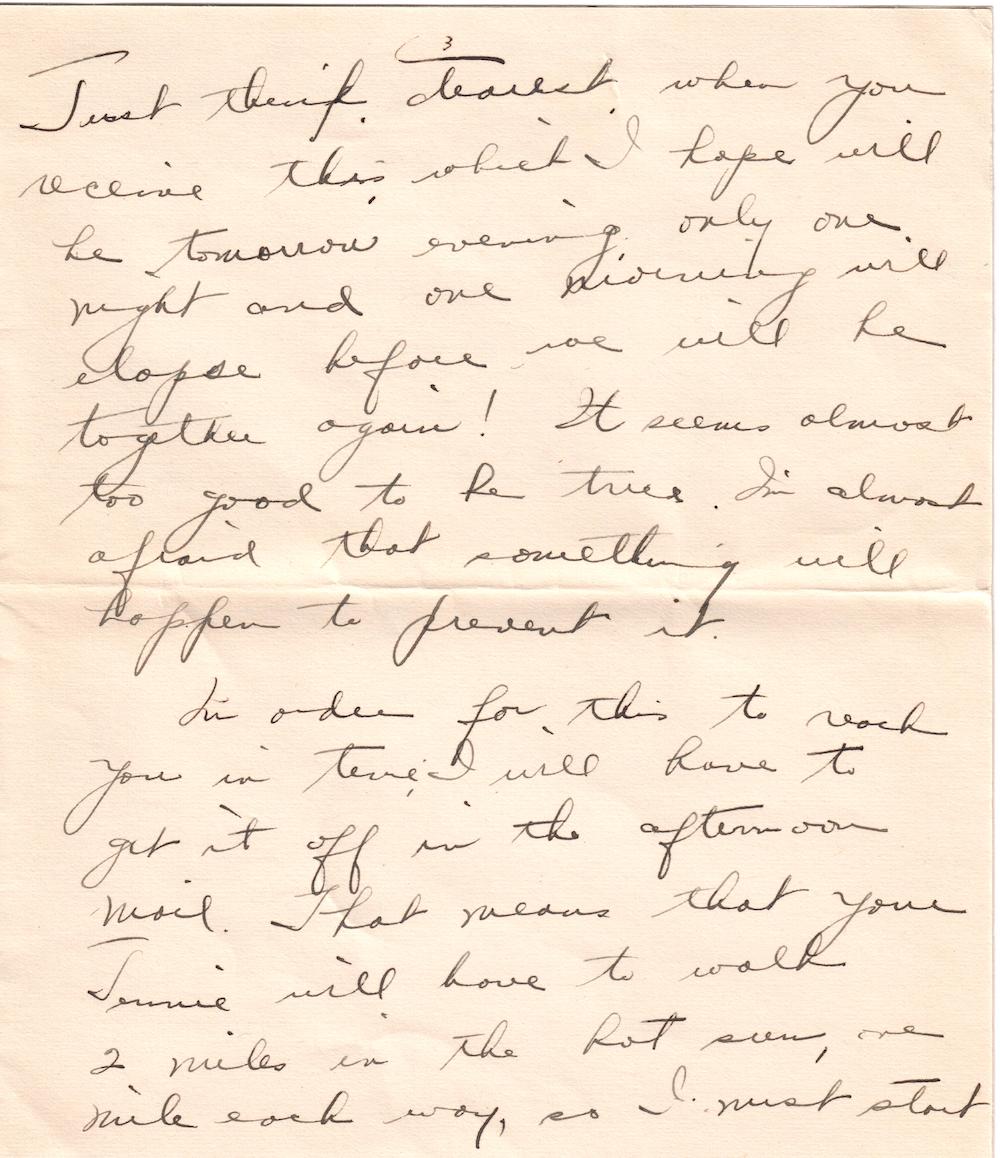 3
Just think, dearest, when you
receive this, which I hope will
be tomorrow evening, only one
night and one morning will
elapse before we will be
together again! It seems almost
too good to be true. I'm almost
afraid that something will
happen to prevent it.
In order for this to reach
you in time, I will have to
get it off in the afternoon
mail. That means that your
Jennie will have to walk
2 miles in the hot sun, one
mile each way, so I must start